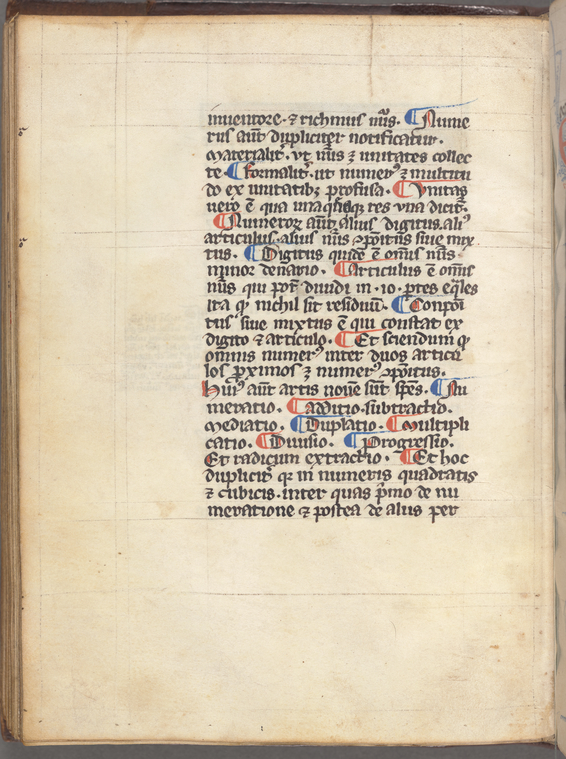 inuentore · ⁊ richmus nu᷒s · ¶ Nume
rus aut̄ dupliciter notificatur ·
Materialit᷑ · vt nu᷒s ē unitates collec
te ¶ formalit᷑ · ut numer᷒ ē multitu
do ex unitatibꝫ profusa · ¶ Vnitas
uero ē qua unaqueqꝫ res vna dicit᷑ ·
¶ Numeroꝝ aut̄ alius digitus · ali᷒
articulus · alius nu᷒s ꝯpositus siue mix
tus · ¶ Digitus quidē ē omīs nu᷒s
minor denario · ¶ Articulus ē omīs
nu᷒s qui pōt diuidi in · 10 · ꝑtes eq̄les
ita ꝙ nichil sit residuū · ¶ Conpoſi
tus siue mixtus ē qui constat ex
digito ⁊ articulo · ¶ Et sciendum ꝙ
omnis numer᷒ inter duos articu
los ꝓximos ē numer᷒ ꝯpositus ·
Hui᷒ aut̄ artis noue sūt spēs · ¶ Nu
meratio · ¶ additio · subtractio ·
Mediatio · ¶ Duplatio · ¶ Multipli
catio · ¶ Diuisio · ¶ Progressio ·
Et radicum extractio · ¶ Et hoc
duplicit᷑ qꝛ in numeris quadratis
⁊ cubicis · inter quas p̄mo de nu
meratione ⁊ postea de aliis per